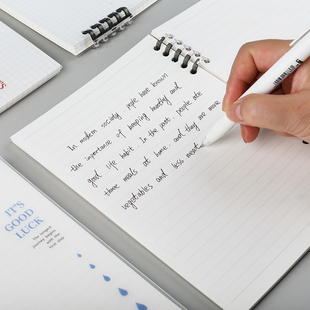 In modern society people have known
the importance of keeping healthy and
good life habit. In the past, people ate
three meals at home, and they are more
vegetables and less meat.
IT'S
GOOD
LUCK
The longest
journey begins
with the
first step